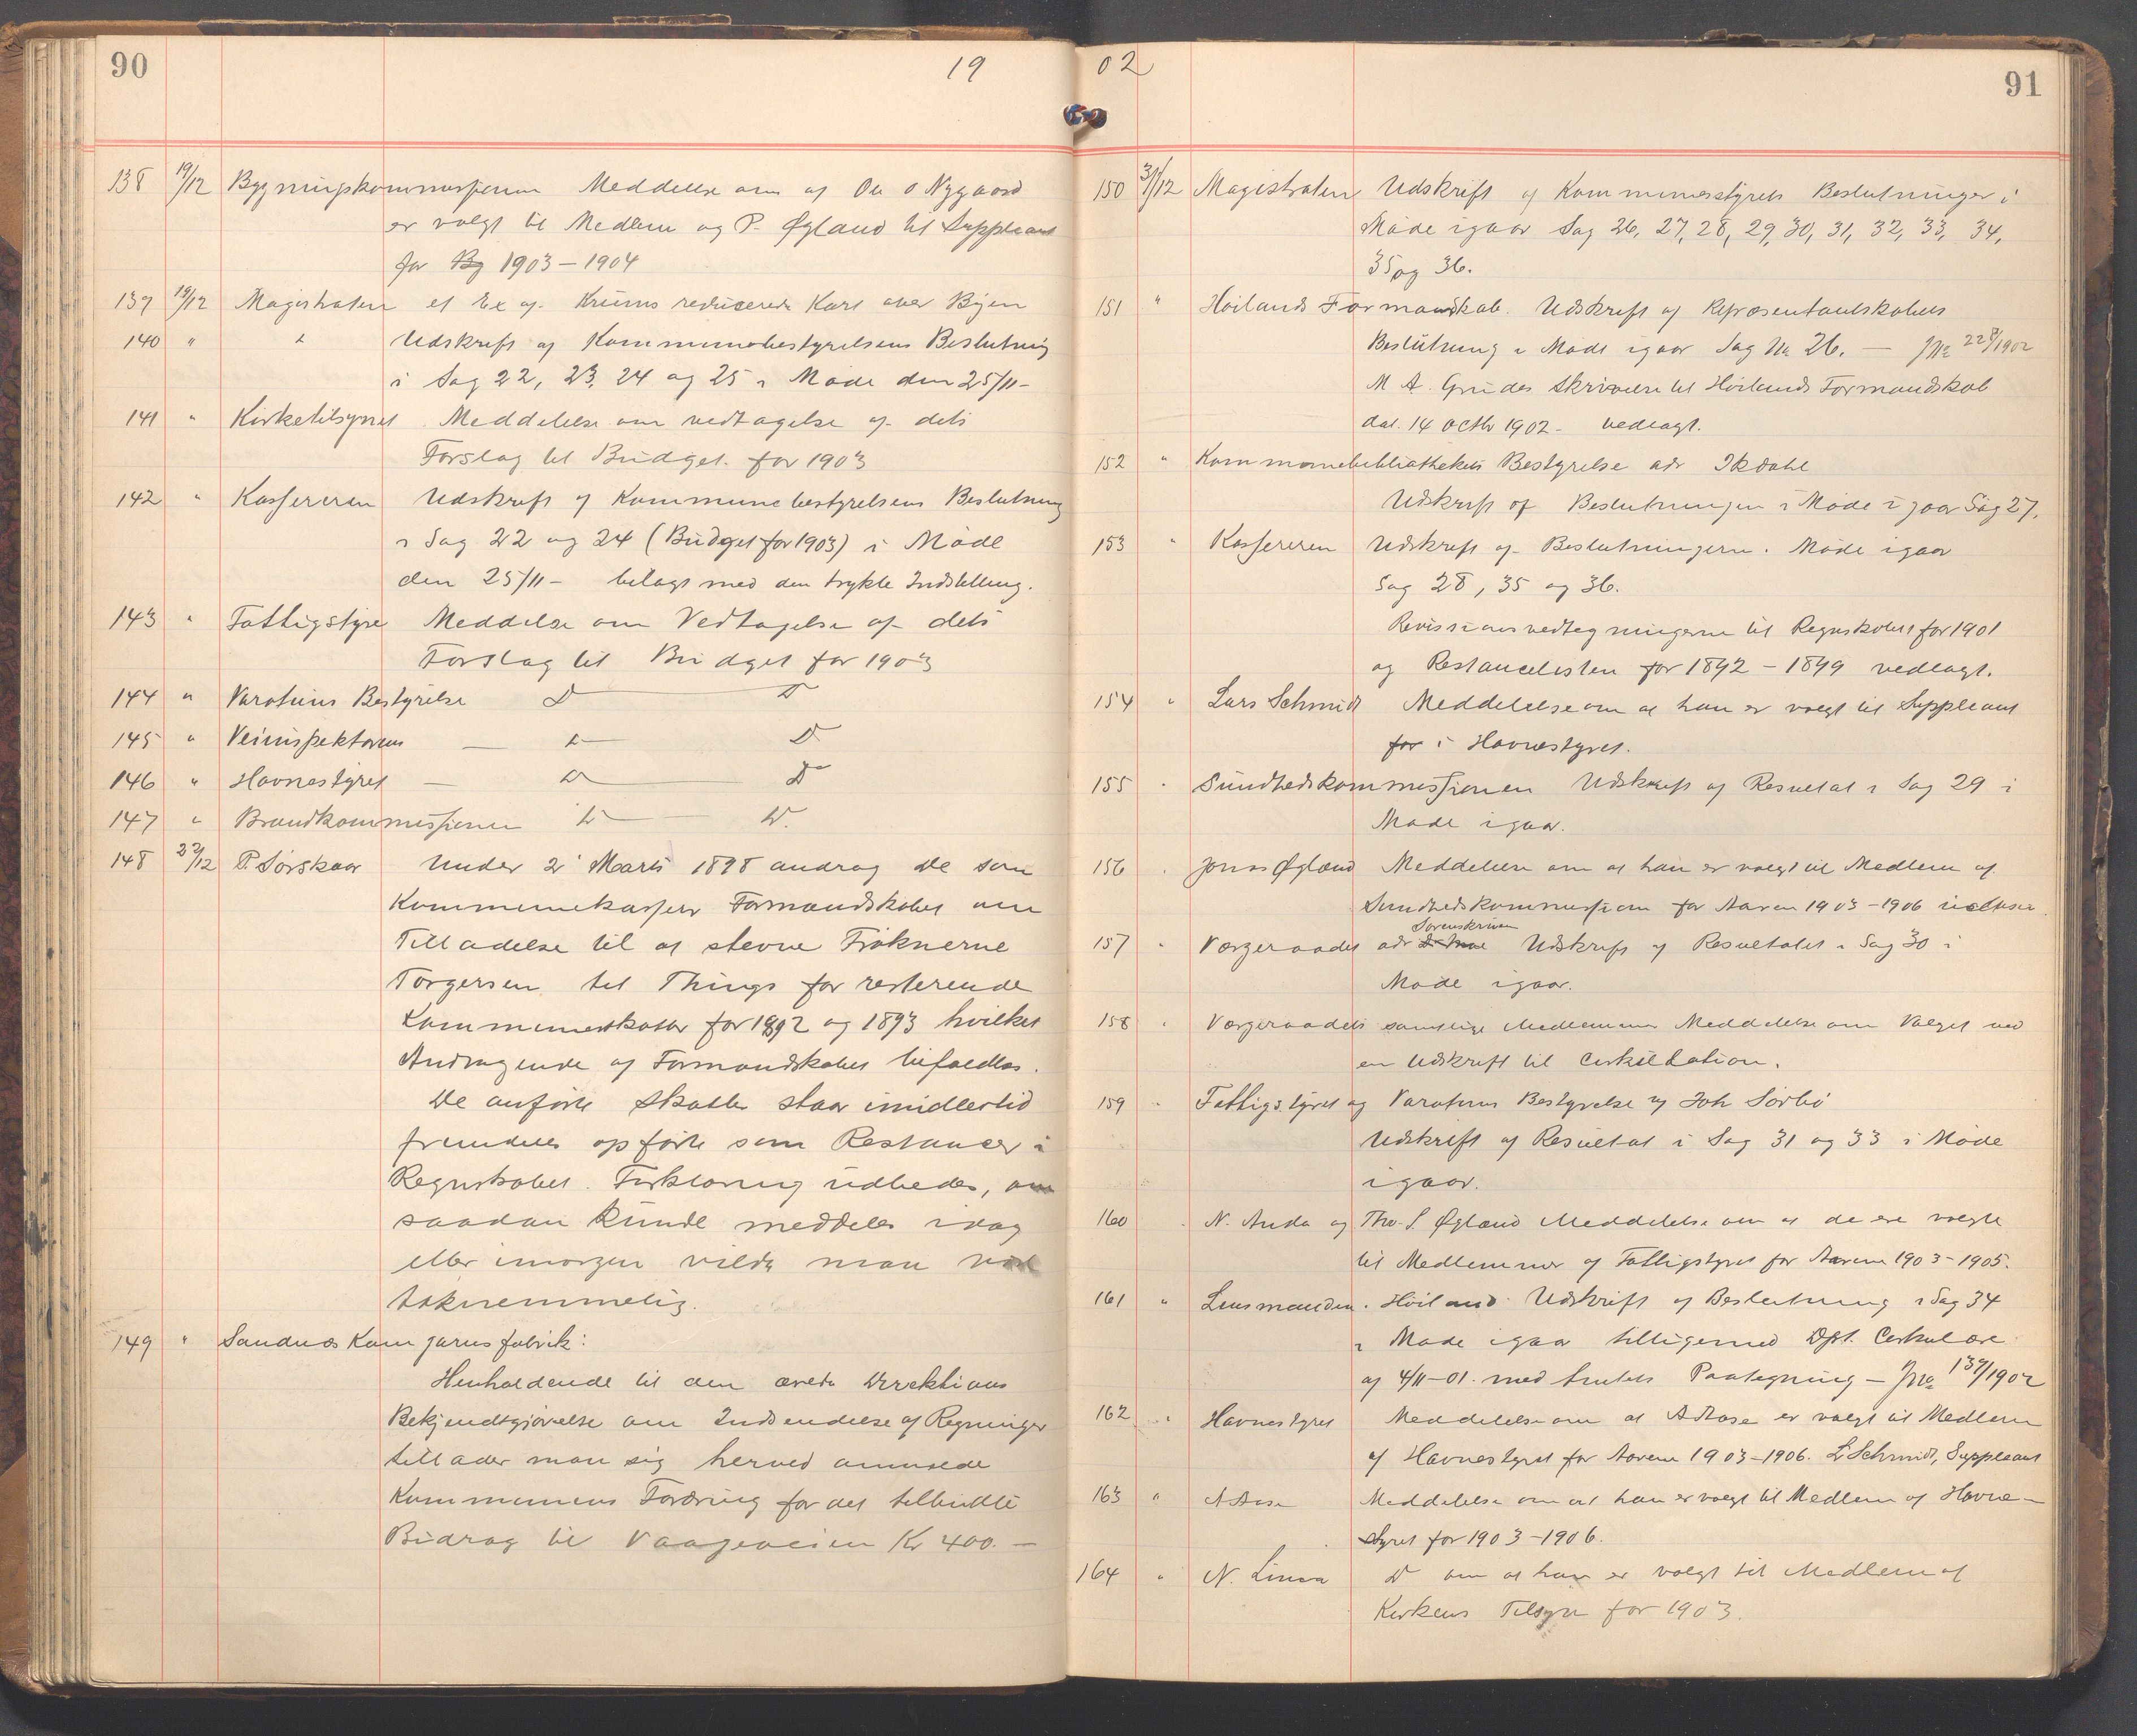 90
19
138 19/12 Bygningskommissionen Meddelelse om at O. Nygaard
er valgt til Medlem og P. Øgland til Suppleant
for By 1903–1904
139 19/12 Magistraten et Ex af Krums reducerede Kart over Byen
140 " " Udskrift af Kommunebestyrelsens Beslutning
i Sag 22, 23, 24 og 25 i Møde den 25/11–
141 " Kirketilsynet Meddelelse om vedtagelse af dets
Forslag til Budget for 1903
142 " Kassereren Udskrift af Kommunebestyrelsens Beslutning
i Sag 22 og 24 (Budget for 1903) i Møde
den 25/11– bilagt med den trykte Indstilling.
143 " Fattigstyret Meddelse om Vedtagelse af dets
Forslag til Budget for 1903
144 " Varatuns Bestyrelse D — D
145 " Veiinspektøren — D — D
146 " Havnestyret — D — D
147 " Brandkommissionen D — D.
148 22/12 P. Sørskaar Under 2 Marts 1898 androg De som
Kommunekasserer Formandskabet om
Tilladelse til at stevne Frøknerne
Torgersen til Things for resterende
Kommuneskatter for 1892 og 1893 hvilket
Andragende af Formandskabet bifaldtes.
De anførte Skatter staar imidlertid
fremdeles opførte som Restancer i
Regnskabet. Forklaring udbedes, om
saadan kunde meddeles idag
eller imorgen vilde man være
taknemmelig.
149 " Sandnæs Kamgarnsfabrik:
Henholdende til den ærede Direktions
Bekjendtgjørelse om Indsendelse af Regninger
tillader man sig herved anmelde
Kommunens Fordring for det tilbudte
Bidrag til Vaageveien Kr 400.—
02
91
150 31/12 Magistraten Udskrift af Kommunestyrets Beslutninger i
Møde igaar Sag 26, 27, 28, 29, 30, 31, 32, 33, 34,
35 og 36.
151 " Høilands Formandskab. Udskrift af Repræsentantskabets
Beslutning i Møde igaar Sag No 26. — Jno 228/1902
M A. Grudes Skrivelse til Høilands Formandskab
dat. 14 Octbr 1902 – vedlagt.
152 " Kommunebibliothekets Bestyrelse adr Ikdahl
Udskrift af Beslutningen i Møde igaar Sag 27.
153 " Kassereren Udskrift af Beslutningerne i Møde igaar
Sag 28, 35 og 36.
Revisionsvedtegningerne til Regnskabet for 1901
og Restancelisten for 1892–1899 vedlagt.
154 " Lars Schmidt Meddelelse om at han er valgt til Suppleant
for i Havnestyret.
155 " Sundhedskommissionen Udskrift af Resultat i Sag 29 i
Møde igaar.
156 " Jonas Øgland Meddelelse om at han er valgt til Medlem af
Sundhedskommissionen for Aarene 1903–1906 inclusive.
Sorenskriver
157 " Værgeraadet adr Udskrift af Resultatet i Sag 30 i
Møde igaar.
158 " Værgeraadets samtlige Medlemmer Meddelelse om Valget ved
en Udskrift til Cirkulation.
159 " Fattigstyret og Varatuns Bestyrelse og Joh Sørbø
Udskrift af Resultat i Sag 31 og 33 i Møde
igaar.
160 " N. Anda og Thv. S. Øgland Meddelelse om at de ere valgte
til Medlemmer af Fattigstyret for Aarene 1903–1905.
161 " Lensmanden i Høiland Udskrift af Beslutning i Sag 34
i Møde igaar tilligemed Dpt. Cirkulære
af 4/11–01. med Amtets Paategning – Jno 139/1902
162 " Havnestyret Meddelelse om at A Aase er valgt til Medlem
af Havnestyret for Aarene 1903–1906. L Schmidt, Suppleant
163 " A Aase Meddelelse om at han er valgt til Medlem af Havne–
styret for 1903–1906.
164 " N. Lima D om at han er valgt til Medlem af
Kirkens Tilsyn for 1903.